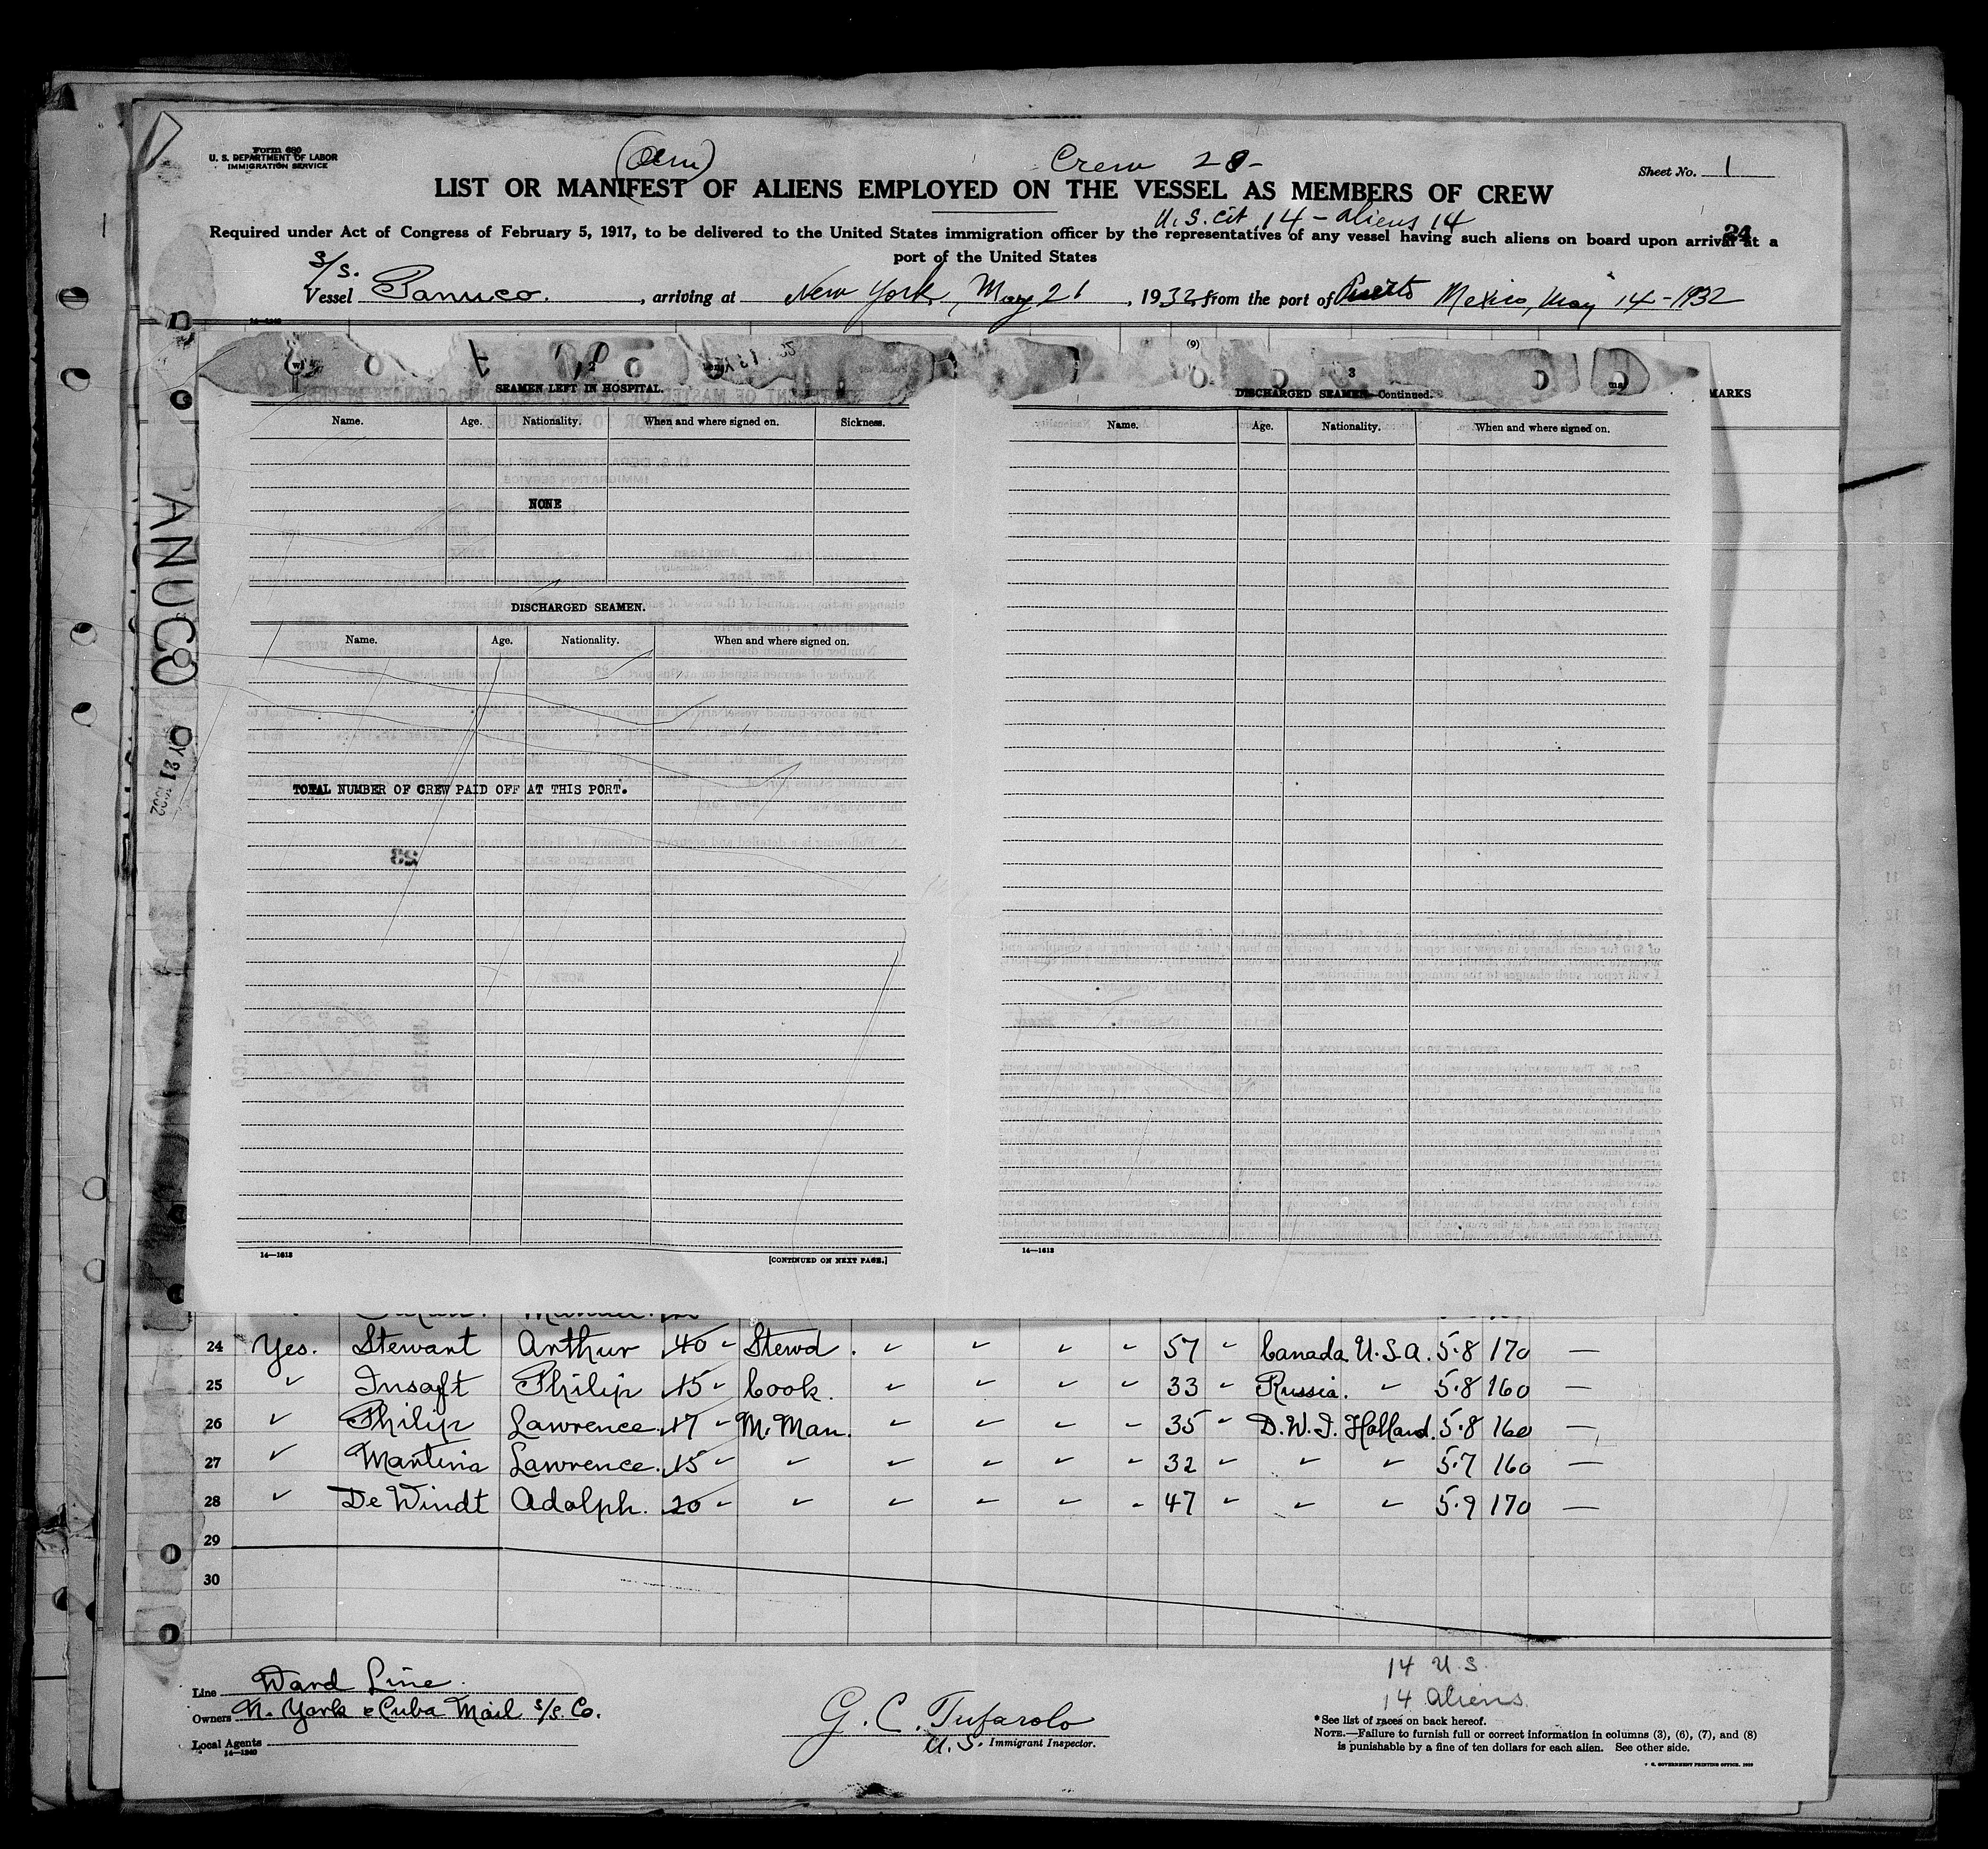 Form 680
U. S. DEPARTMENT OF LABOR
IMMIGRATION SERVICE
Crew 28-
Sheet No. 1
LIST OR MANIFEST OF ALIENS EMPLOYED ON THE VESSEL AS MEMBERS OF CREW
U.S. cit 14 - aliens 14
Required under Act of Congress of February 5, 1917, to be delivered to the United States immigration officer by the representatives of any vessel having such aliens on board upon arrival at a
24
port of the United States
S/S.
Vessel Panuco. , arriving at New York, May 21 , 1932, from the port of Puerto Mexico, May 14-1932
(9)
2
SEAMEN LEFT IN HOSPITAL.
Name. Age. Nationality. When and where signed on. Sickness.
NONE
DISCHARGED SEAMEN.
Name. Age. Nationality. When and where signed on.
TOTAL NUMBER OF CREW PAID OFF AT THIS PORT.
28
14—1613
[CONTINUED ON NEXT PAGE.]
3
DISCHARGED SEAMEN—Continued.
Name. Age. Nationality. When and where signed on.
14—1613
MARKS
PANUCO
24 Yes. Stewart Arthur 40 " Stewd. " " " " 57 " Canada U.S.A. 5.8 170 —
25 " Insaft Philip 15 " Cook. " " " " 33 " Russia. " 5.8 160 —
26 " Philip Lawrence. 17 " M. Man. " " " " 35 " D.W.I. Holland. 5.8 160 —
27 " Martina Lawrence. 15 " " " " " " 32 " " " 5.7 160 —
28 " De Windt Adolph. 20 " " " " " " 47 " " " 5.9 170 —
29
30
Line Ward Line.
Owners N. York & Cuba Mail S/S. Co.
Local Agents
14—1240
G. C. Tufarolo
U. S. Immigrant Inspector.
14 U.S.
14 aliens
* See list of races on back hereof.
NOTE.—Failure to furnish full or correct information in columns (3), (6), (7), and (8)
is punishable by a fine of ten dollars for each alien. See other side.